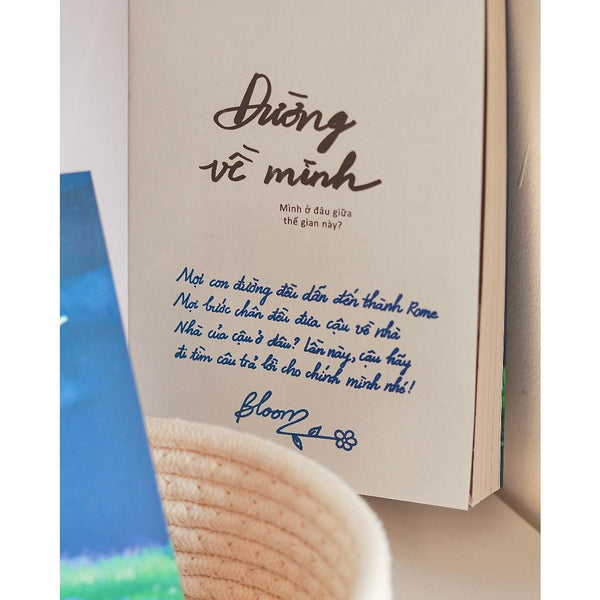 Đường
về mình
Mình ở đâu giữa
thế gian này?
Mọi con đường đều dẫn đến thành Rome
Mọi bước chân đều đưa cậu về nhà
Nhà của cậu ở đâu? Lần này, cậu hãy
đi tìm câu trả lời cho chính mình nhé!
Bloom